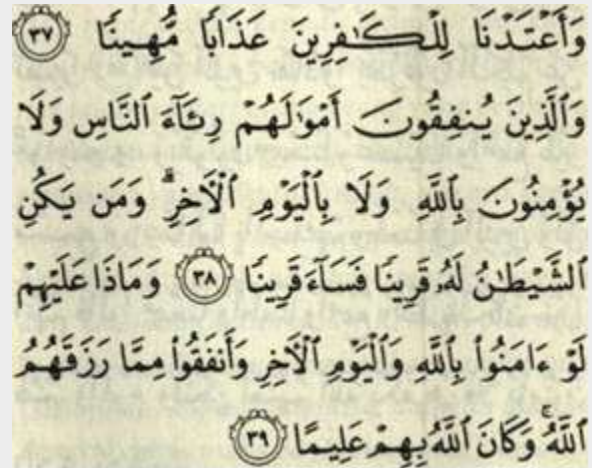 وَأَعْتَدْنَا لِلْكَٰفِرِينَ عَذَابًا مُّهِينًا ٣٧
وَالَّذِينَ يُنفِقُونَ أَمْوَٰلَهُمْ رِئَآءَ النَّاسِ وَلَا
يُؤْمِنُونَ بِاللَّهِ وَلَا بِالْيَوْمِ الْآخِرِ ۗ وَمَن يَكُنِ
الشَّيْطَٰنُ لَهُۥ قَرِينًا فَسَآءَ قَرِينًا ٣٨ وَمَاذَا عَلَيْهِمْ
لَوْ ءَامَنُوا۟ بِاللَّهِ وَالْيَوْمِ الْآخِرِ وَأَنفَقُوا۟ مِمَّا رَزَقَهُمُ
اللَّهُ ۚ وَكَانَ اللَّهُ بِهِمْ عَلِيمًا ٣٩